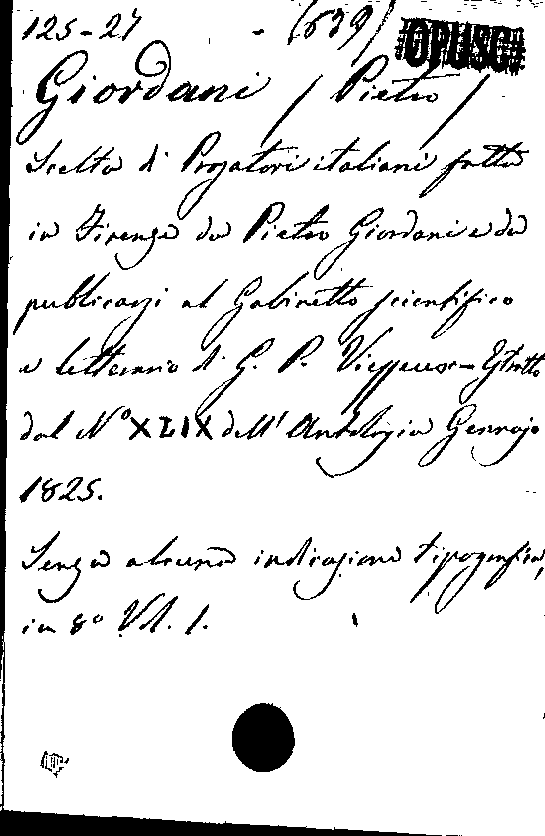 125-27 - (639) OPUSC
Giordani / Pietro /
Scelta di Prosatori italiani fatta
in Firenze da Pietro Giordani e da
publicarsi al Gabinetto scientifico
e letterario di G. P. Vieusseux - Estratto
dal N° XLIX dell' Antologia Gennajo
1825.
Senza alcuna indicazione tipografica,
in 8° Vol. 1.